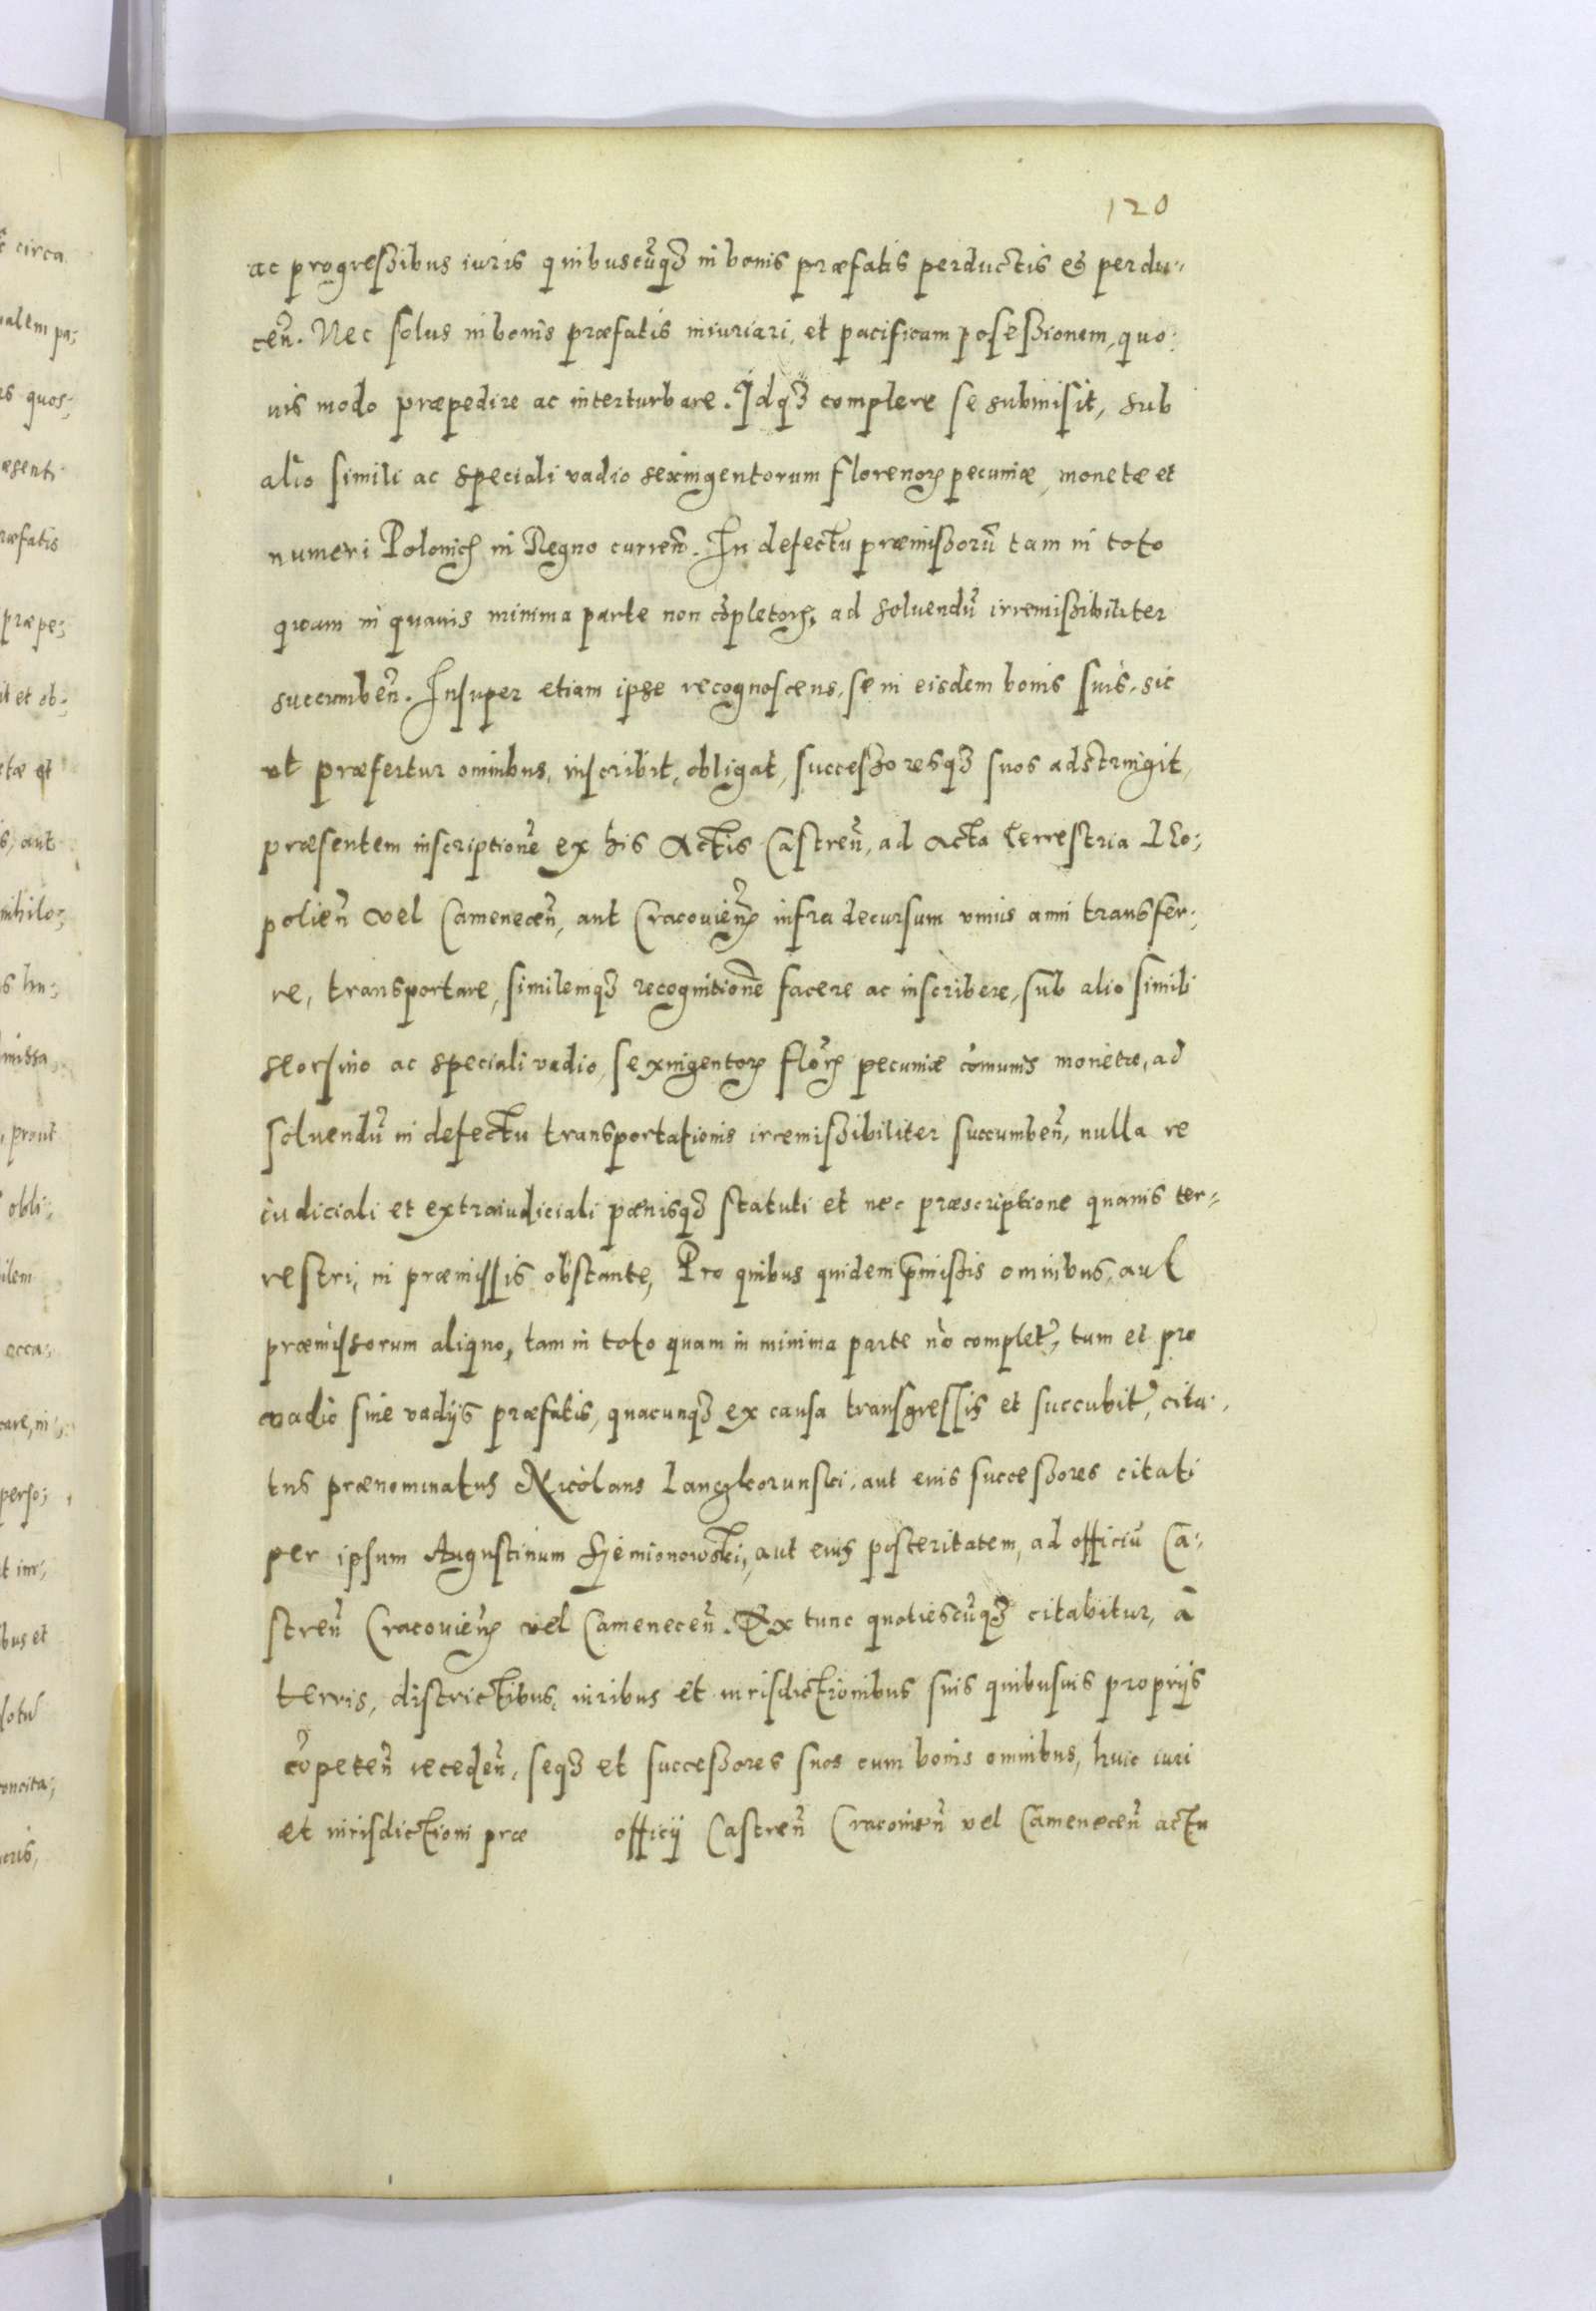 120
ac progressibus iuris quibuscũq3 in bonis præfatis perductis et perdu-
ceñ. Nec solus in bonis præfatis iniuriari, et pacificam posessionem, quo-
uis modo præpedire ac interturbare. Idq3 complere se submisit, sub
alio simili ac speciali vadio sexingentorum florenorꝝ pecuniæ, monetæ et
numeri Polonicꝝ in Regno curreñ. In defectu præmissorũ tam in toto
quam in quauis minima parte non cõpletorꝝ, ad soluendũ irremissibiliter
succumbeñ. Insuper etiam ipse recognoscens, se in eisdem bonis suis, sic
ut præfertur omnibus, inscribit, obligat, successoresq3 suos adstringit,
præsentem inscriptionẽ ex his Actis Castreñ, ad Acta terrestria
polieñ vel Cameneceñ, aut Cracovieñ infra decursum vnius anni transfer-
re, transportare, similemq3 recognitionẽ facere ac inscribere, sub alio simili
seorsiuo ac speciali vadio, sexingentorꝝ florꝝ pecuniæ cõmunis monetæ, ad
soluendũ in defectu transportationis irremissibiliter succumbeñ, nulla re
iudiciali et extraiudiciali pænisq3 statuti et nec præscriptione quauis ter-
restri, in præmissis obstante, Pro quibus quidem p̃missis omnibus, aut
præmissorum aliquo, tam in toto quam in minima parte nõ complet̃, tum et pro
vadio siue vadijs præfatis, quacunq3 ex causa transgressis et succubit̃, cita-
tus prænominatus Nicolaus Lanczkorunski, aut eius successores citati
per ipsum Augustinum Sjemionowski, aut eius posteritatem, ad officiũ Ca-
streñ Cracouieñ vel Cameneceñ. Ex tunc quotiescũq3 citabitur, à
terris, districtibus, iuribus et iurisdictionibus suis quibusuis proprijs
cõpeteñ recedeñ, seq3 et successores suos cum bonis omnibus, huic iuri
et iurisdictioni præ officij Castreñ Cracouieñ vel Cameneceñ actu